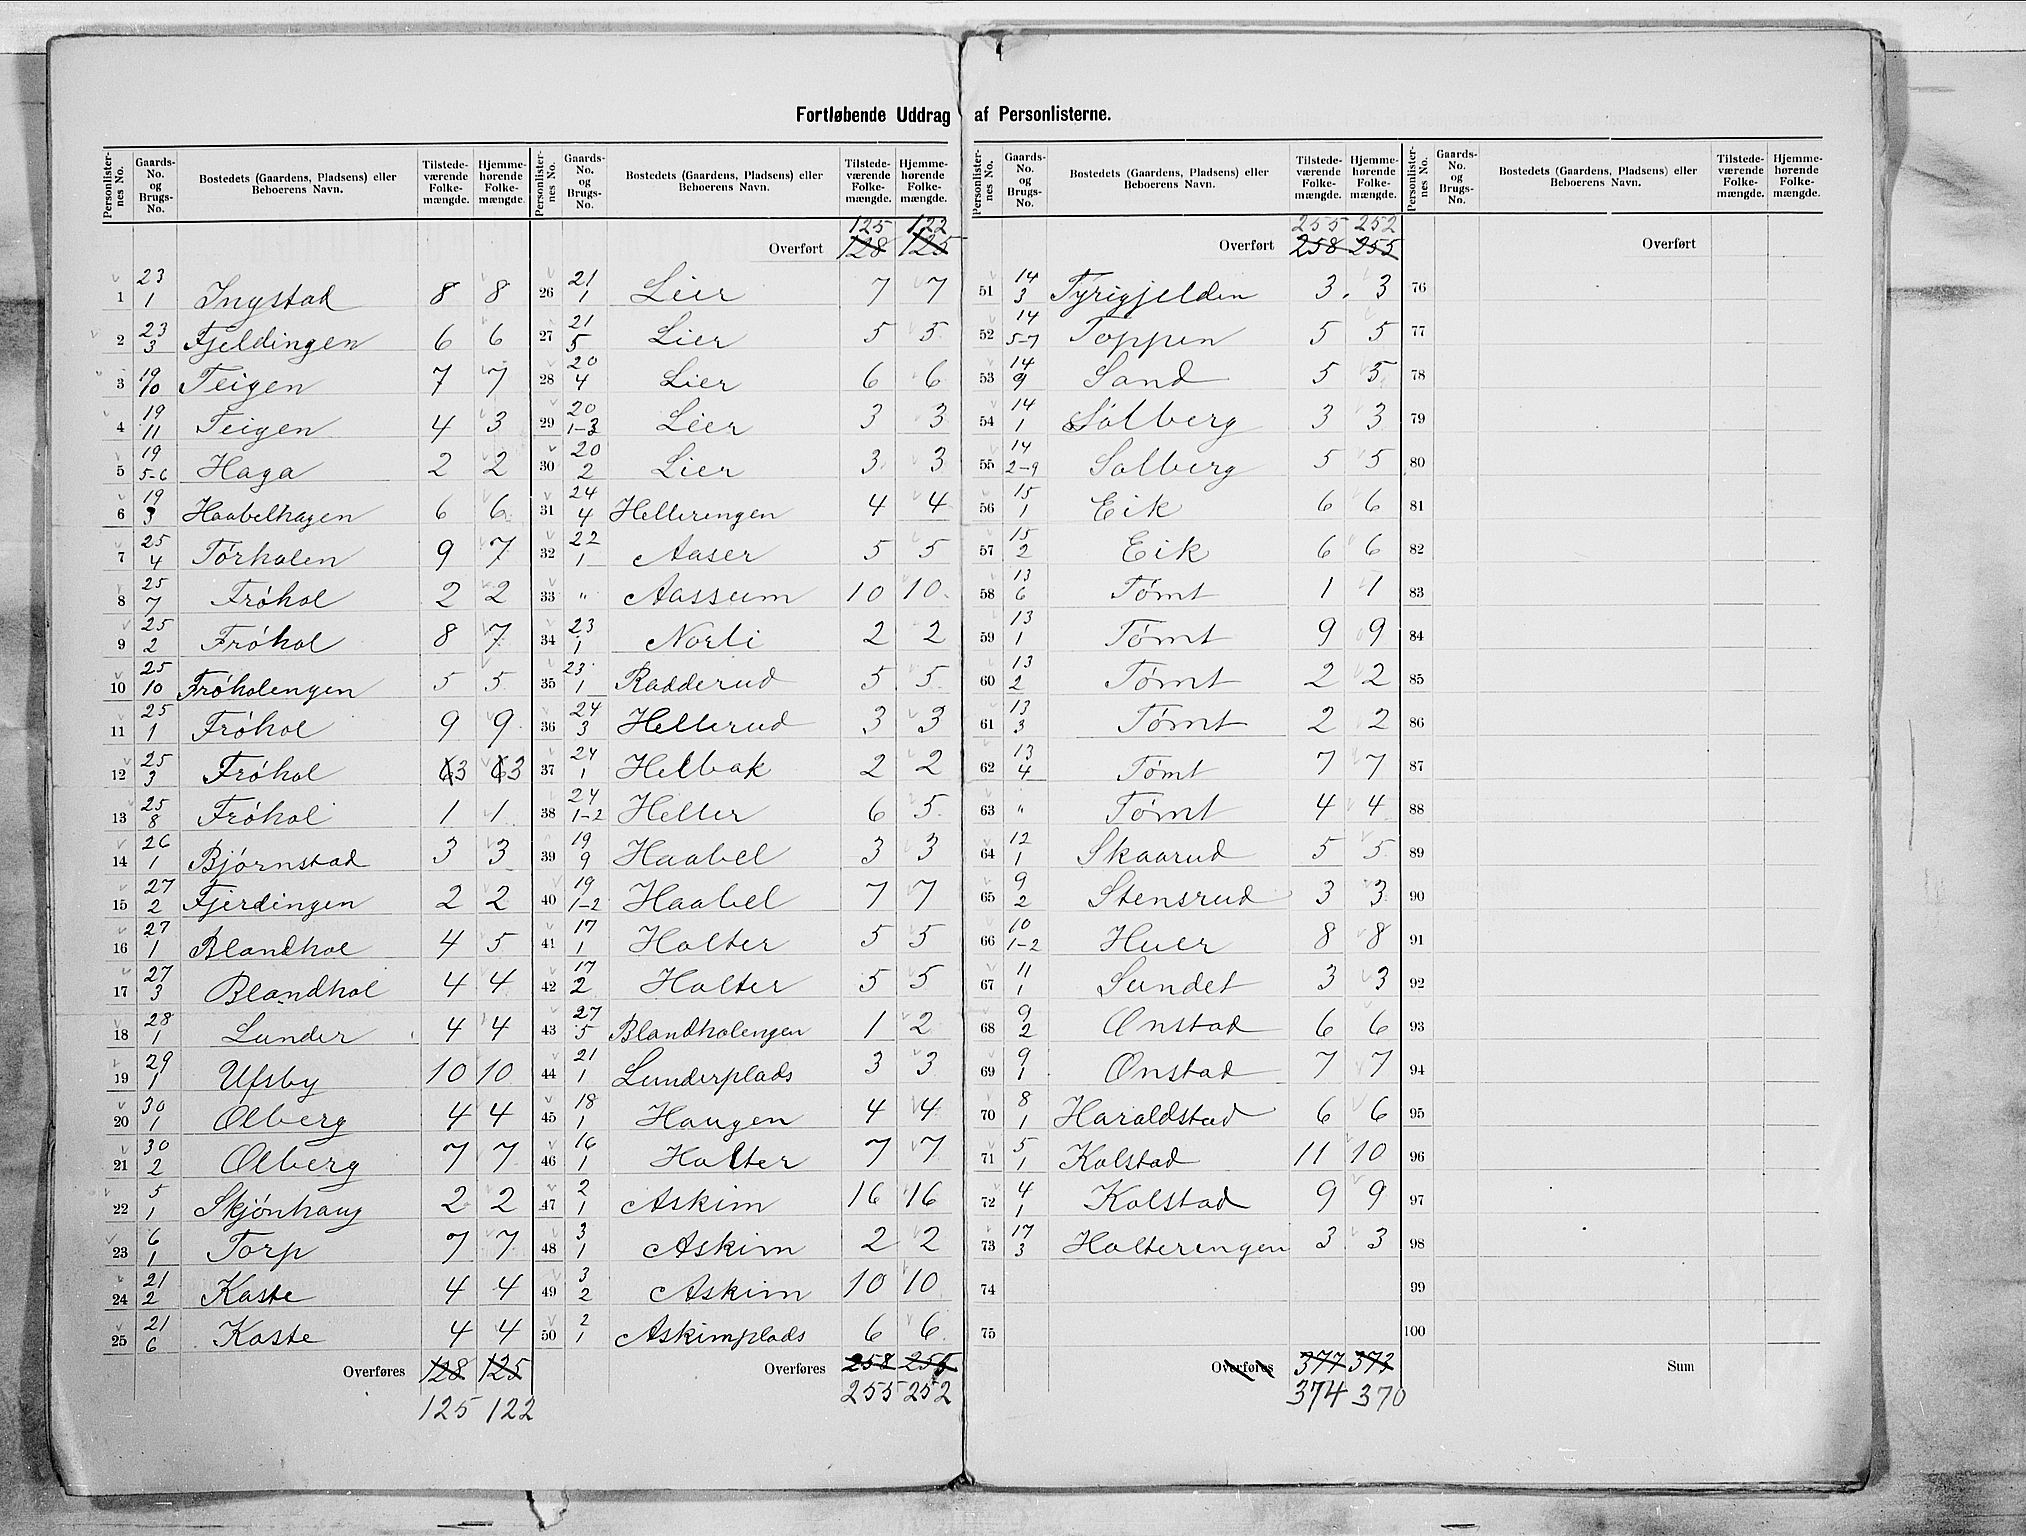 Fortløbende Uddrag af Personlisterne.
Personlister-nes No. | Gaards-No. og Brugs-No. | Bostedets (Gaardens, Pladsens) eller Beboerens Navn. | Tilstede-værende Folke-mængde. | Hjemme-hørende Folke-mængde.
1 | 23/1 | Ingstad | 8 | 8
2 | 23/3 | Fjeldingen | 6 | 6
3 | 19/10 | Teigen | 7 | 7
4 | 19/11 | Teigen | 4 | 3
5 | 19/5-6 | Haga | 2 | 2
6 | 19/3 | Haabelhagen | 6 | 6
7 | 25/4 | Tørholen | 9 | 7
8 | 25/7 | Frøhol | 2 | 2
9 | 25/2 | Frøhol | 8 | 7
10 | 25/10 | Frøholengen | 5 | 5
11 | 25/1 | Frøhol | 9 | 9
12 | 25/3 | Frøhol | 6 3 | 6 3
13 | 25/8 | Frøhol | 1 | 1
14 | 26/1 | Bjørnstad | 3 | 3
15 | 27/2 | Fjerdingen | 2 | 2
16 | 27/1 | Blandhol | 4 | 5
17 | 27/3 | Blandhol | 4 | 4
18 | 28/1 | Lunder | 4 | 4
19 | 29/1 | Ufsby | 10 | 10
20 | 30/1 | Olberg | 4 | 4
21 | 30/2 | Olberg | 7 | 7
22 | 5/1 | Skjønhaug | 2 | 2
23 | 6/1 | Torp | 7 | 7
24 | 21/2 | Kaste | 4 | 4
25 | 21/6 | Kaste | 4 | 4
Overføres 128 125
125 122
Personlister-nes No. | Gaards-No. og Brugs-No. | Bostedets (Gaardens, Pladsens) eller Beboerens Navn. | Tilstede-værende Folke-mængde. | Hjemme-hørende Folke-mængde.
125 122
Overført 128 125
26 | 21/1 | Lier | 7 | 7
27 | 21/5 | Lier | 5 | 5
28 | 20/4 | Lier | 6 | 6
29 | 20/1-3 | Lier | 3 | 3
30 | 20/2 | Lier | 3 | 3
31 | 24/4 | Hellerengen | 4 | 4
32 | 22/1 | Aaser | 5 | 5
33 | " | Aassum | 10 | 10
34 | 23/1 | Norli | 2 | 2
35 | 23/1 | Radderud | 5 | 5
36 | 24/3 | Hellerud | 3 | 3
37 | 24/1 | Helbak | 2 | 2
38 | 24/1-2 | Heller | 6 | 5
39 | 19/9 | Haabel | 3 | 3
40 | 19/1-2 | Haabel | 7 | 7
41 | 17/1 | Holter | 5 | 5
42 | 17/2 | Holter | 5 | 5
43 | 27/5 | Blandholengen | 1 | 2
44 | 21/1 | Lunderplads | 3 | 3
45 | 18/1 | Haugen | 4 | 4
46 | 16/1 | Holter | 7 | 7
47 | 2/1 | Askim | 16 | 16
48 | 3/1 | Askim | 2 | 2
49 | 3/2 | Askim | 10 | 10
50 | 2/1 | Askimplads | 6 | 6
Overføres 258 255
255 252
Personlister-nes No. | Gaards-No. og Brugs-No. | Bostedets (Gaardens, Pladsens) eller Beboerens Navn. | Tilstede-værende Folke-mængde. | Hjemme-hørende Folke-mængde.
255 252
Overført 258 255
51 | 14/3 | Tyrigjelden | 3 | 3
52 | 14/5-7 | Toppen | 5 | 5
53 | 14/9 | Sand | 5 | 5
54 | 14/1 | Solberg | 3 | 3
55 | 14/2-9 | Solberg | 5 | 5
56 | 15/1 | Eik | 6 | 6
57 | 15/2 | Eik | 6 | 6
58 | 13/6 | Tømt | 1 | 1
59 | 13/1 | Tømt | 9 | 9
60 | 13/2 | Tømt | 2 | 2
61 | 13/3 | Tømt | 2 | 2
62 | 13/4 | Tømt | 7 | 7
63 | " | Tømt | 4 | 4
64 | 12/1 | Skaarud | 5 | 5
65 | 9/2 | Stensrud | 3 | 3
66 | 10/1-2 | Huer | 8 | 8
67 | 11/1 | Sundet | 3 | 3
68 | 9/2 | Onstad | 6 | 6
69 | 9/1 | Onstad | 7 | 7
70 | 8/1 | Haraldstad | 6 | 6
71 | 5/1 | Kolstad | 11 | 10
72 | 4/1 | Kolstad | 9 | 9
73 | 17/3 | Holterengen | 3 | 3
74
75
Overføres 377 373
374 370
Personlister-nes No. | Gaards-No. og Brugs-No. | Bostedets (Gaardens, Pladsens) eller Beboerens Navn. | Tilstede-værende Folke-mængde. | Hjemme-hørende Folke-mængde.
Overført
76
77
78
79
80
81
82
83
84
85
86
87
88
89
90
91
92
93
94
95
96
97
98
99
100
Sum